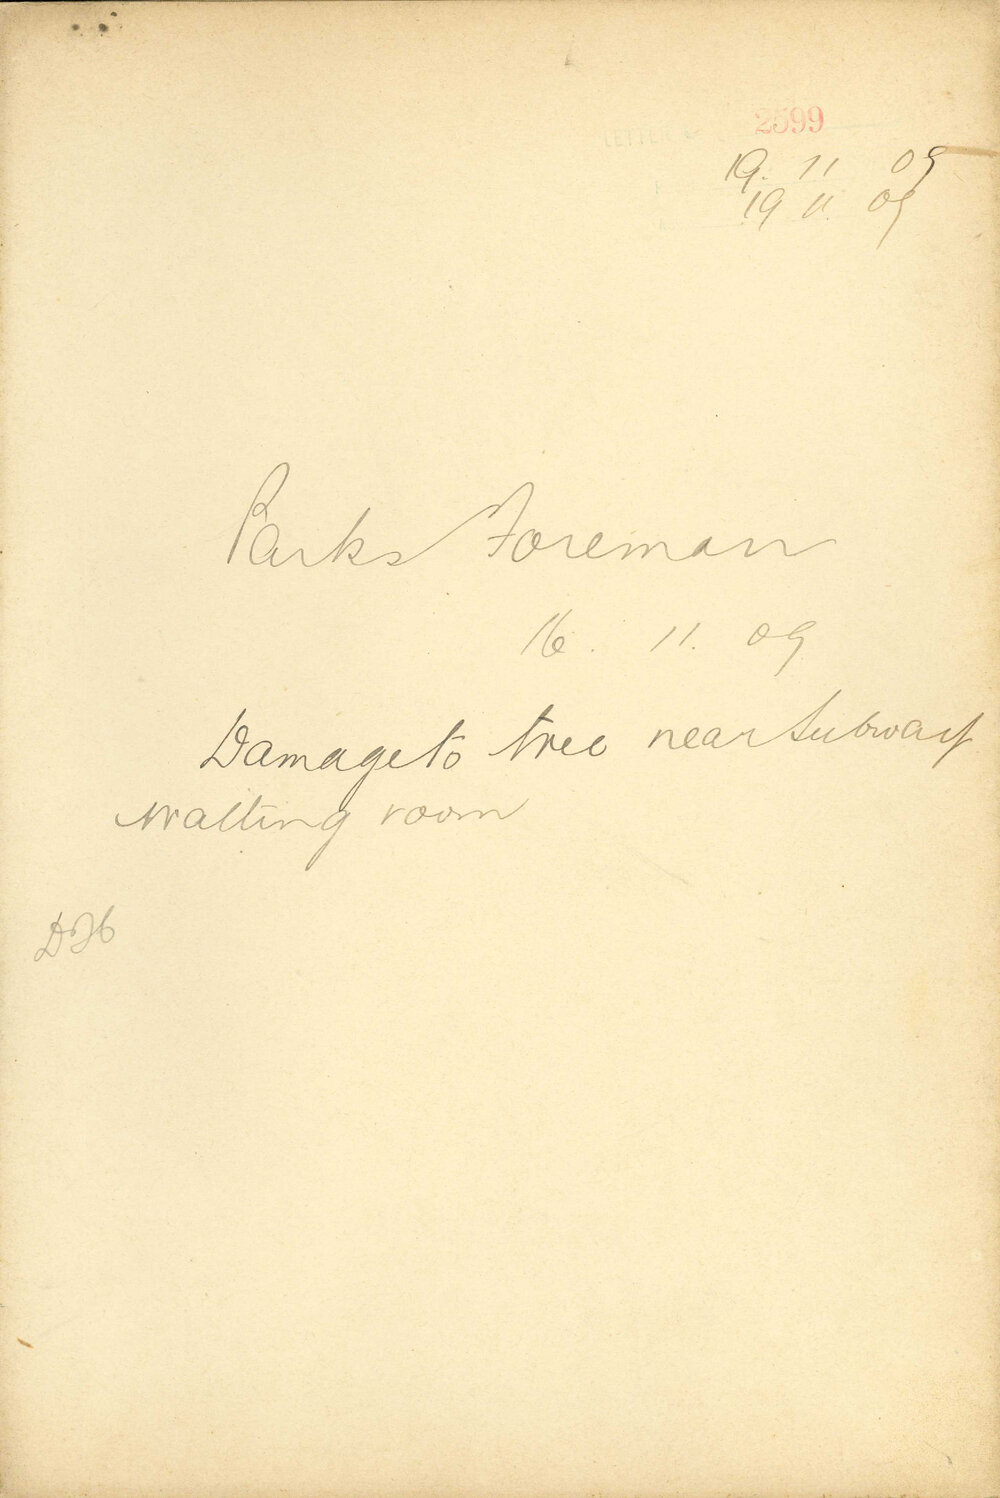 2599
19. 11 09
19 11. 09
Parks Foreman
16. 11. 09
Damage to tree near Subway
Waiting room